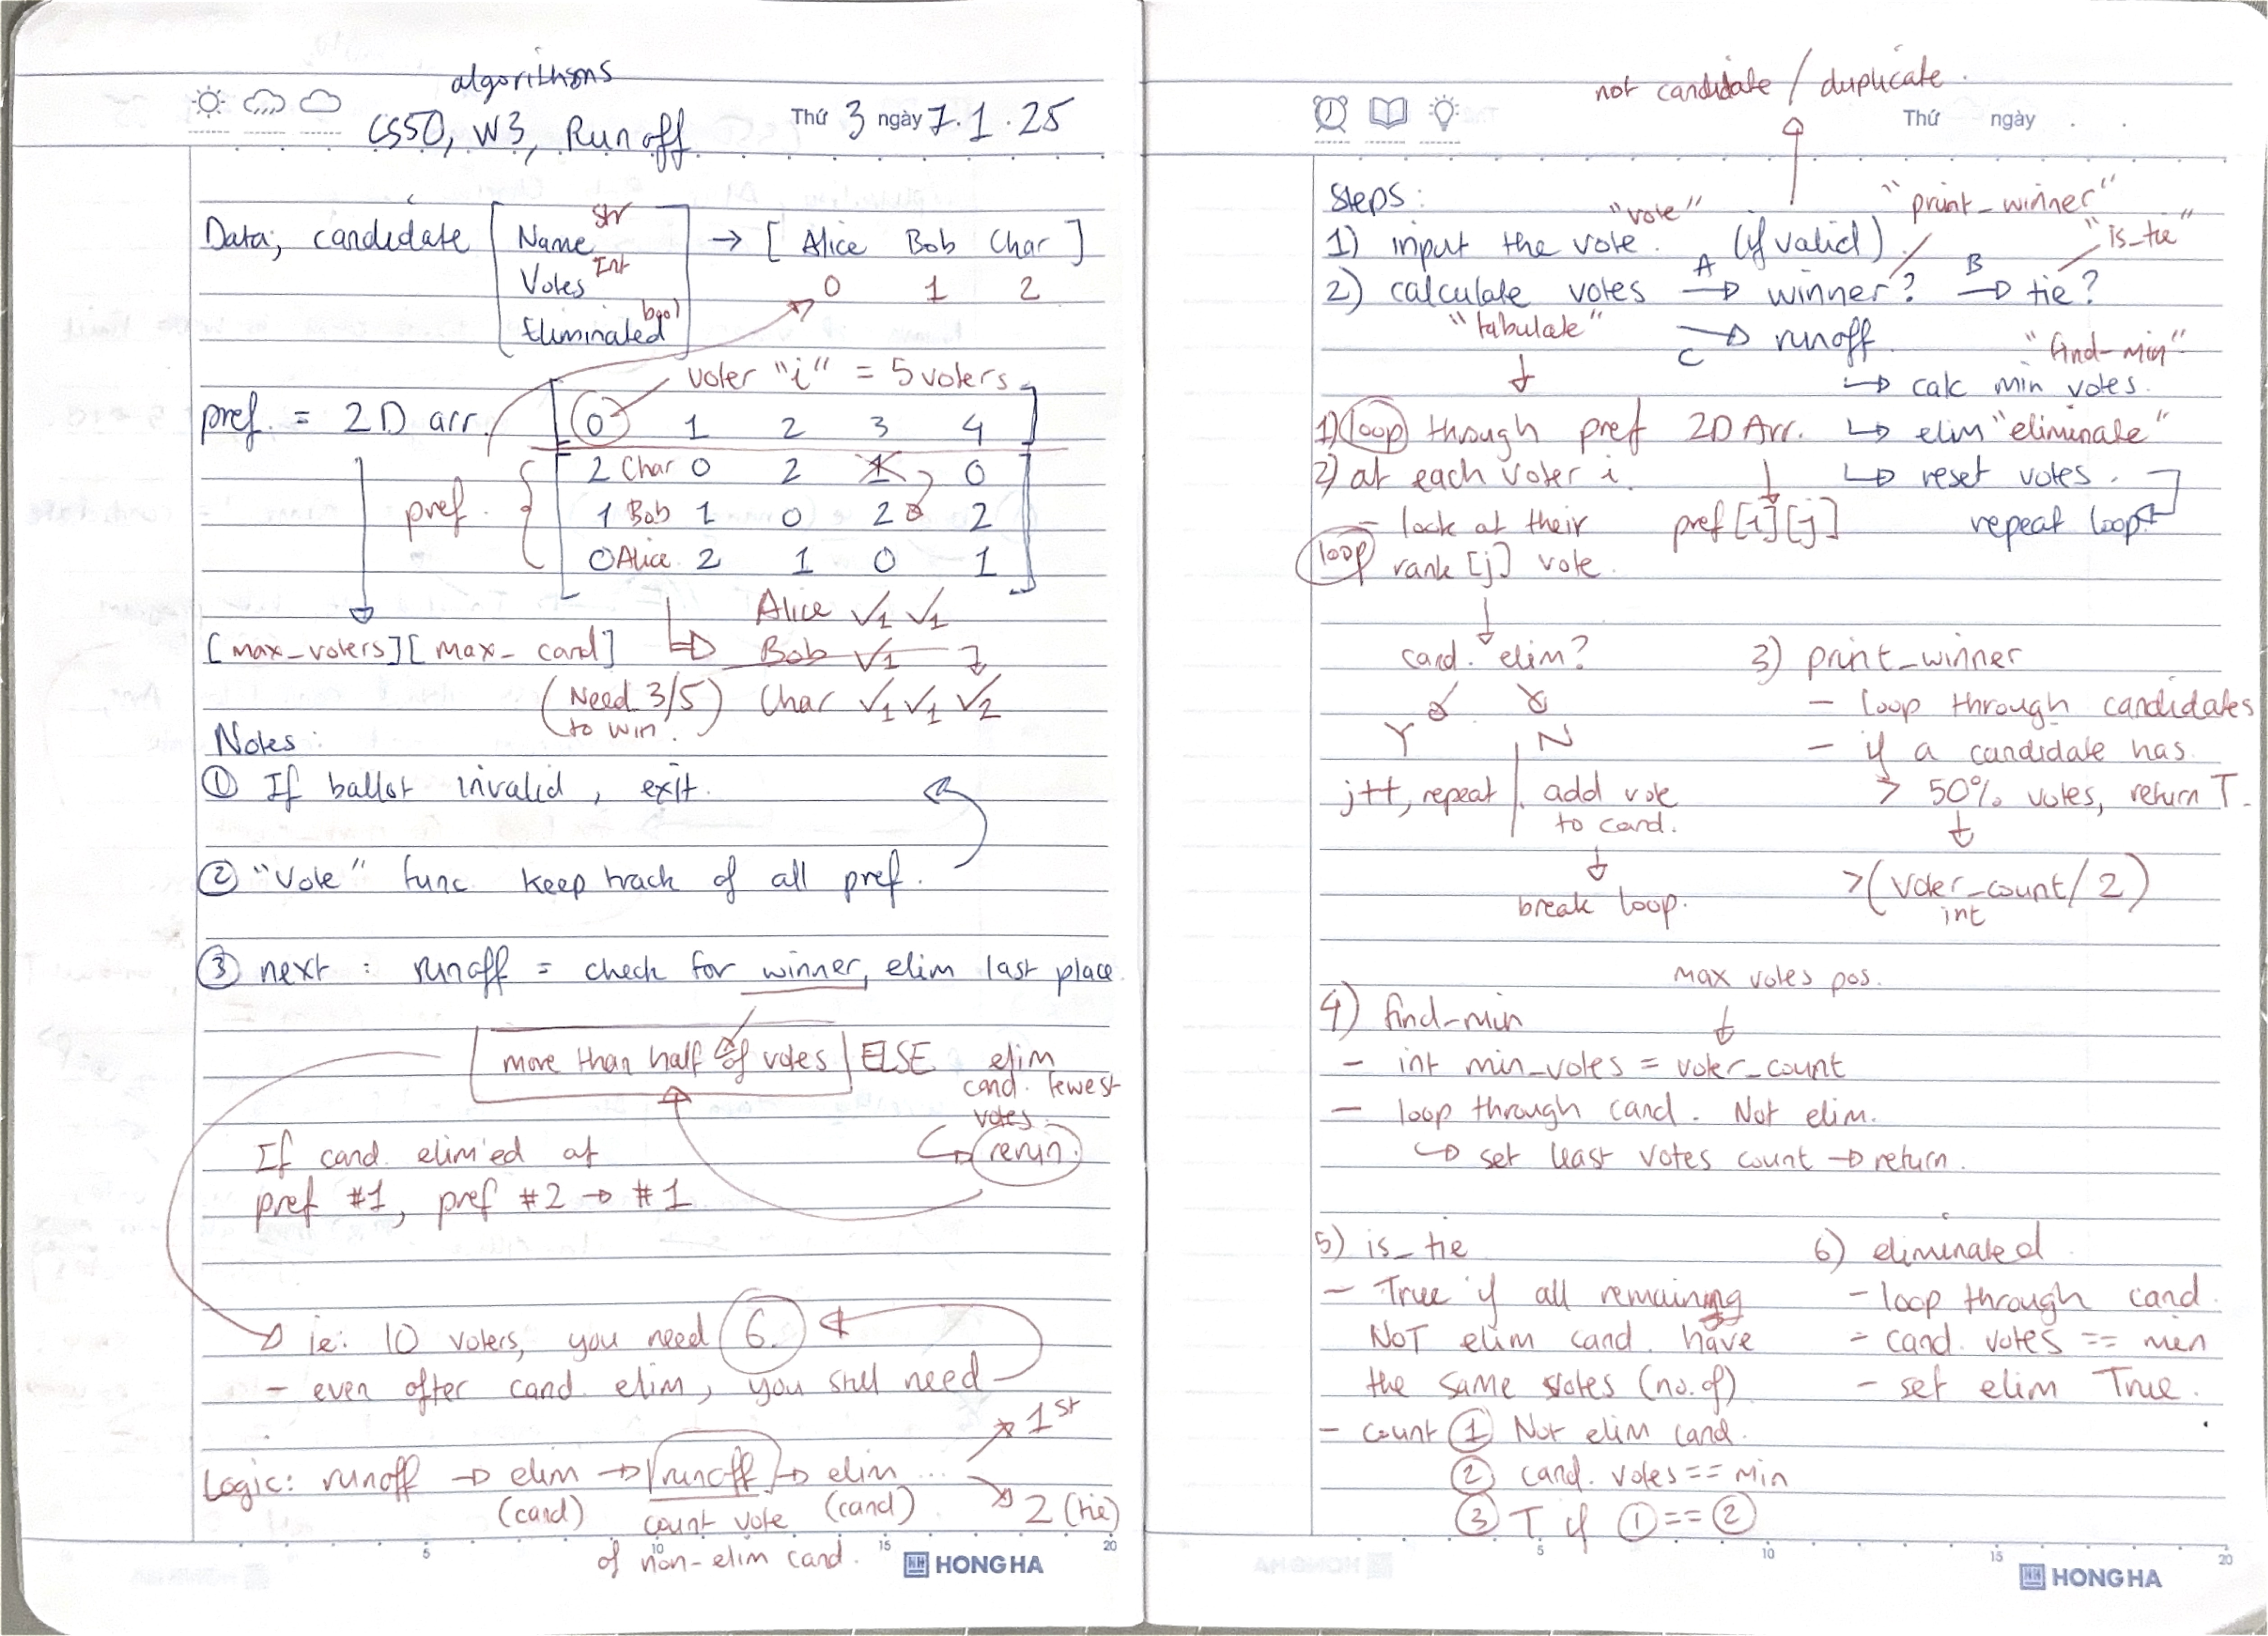 algorithms
CS50, W3, Runoff
Thứ 3 ngày 7.1.25
Data; candidate
Name str
Votes Int
Eliminated bool
→ [ Alice Bob Char ]
0 1 2
voter "i" = 5 voters
pref. = 2D arr.
0 1 2 3 4
pref.
2 Char 0 2 1 0
1 Bob 1 0 2 2
0 Alice 2 1 0 1
[max_voters][max_cand]
Alice √1 √1
Bob √1
Char √1 √1 √2
(Need 3/5)
to win.
Notes:
① If ballot invalid, exit.
② "Vote" func keep track of all pref.
③ next : runoff = check for winner, elim last place
more than half of votes ELSE elim
cand. fewest
votes
rerun.
If cand. elim'ed at
pref #1, pref #2 → #1
ie: 10 voters, you need 6.
- even after cand. elim, you still need
Logic: runoff → elim → runoff → elim ...
(cand)
count vote
of non-elim cand.
(cand)
1st
2 (tie)
5 10 15 20
HONG HA
not candidate / duplicate.
Thứ ngày . .
Steps:
1) input the vote. "vote" (if valid)
"print_winner"
"is_tie"
2) calculate votes A → winner? B → tie?
"tabulate"
C → runoff
"find-min"
↳ calc min votes.
↳ elim "eliminate"
↳ reset votes.
repeat loop
1) loop through pref 2D Arr.
2) at each voter i.
- look at their pref[i][j]
loop rank [j] vote.
cand. elim?
Y N
j++, repeat
add vote
to cand.
break loop.
3) print_winner
- loop through candidates
- if a candidate has
> 50% votes, return T.
>(voter_count/2)
int
max votes pos.
4) find-min
- int min_votes = voter_count
- loop through cand. Not elim.
↳ set least votes count → return.
5) is_tie
- True if all remaining
NOT elim cand. have
the same votes (no. of)
- count ① Not elim cand.
② cand. votes == min
③ T if ① == ②
6) eliminated
- loop through cand.
- cand. votes == min
- set elim True.
5 10 15 20
HONG HA